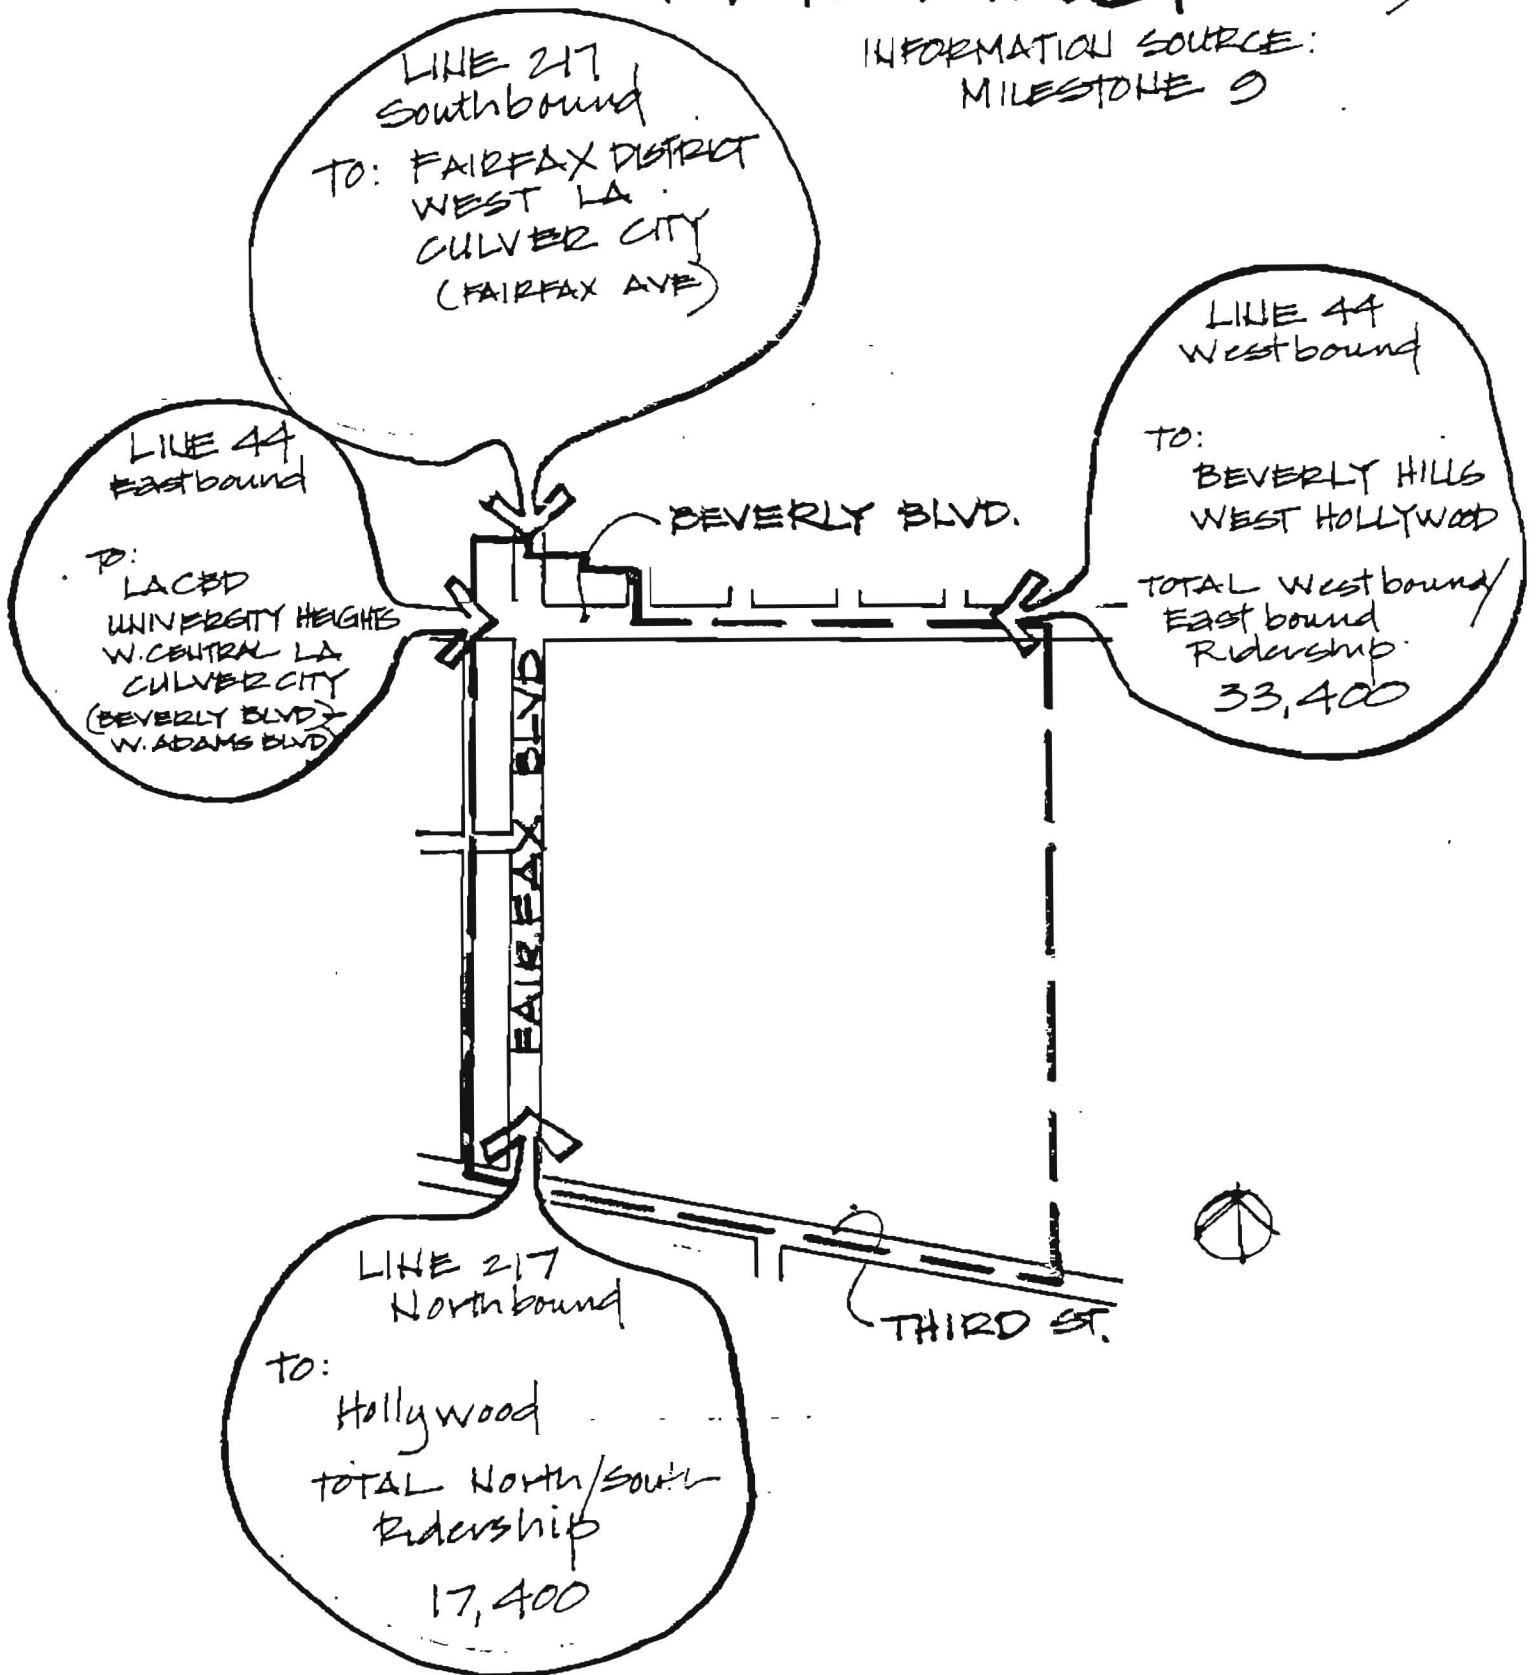 INFORMATION SOURCE:
MILESTONE 9
LINE 217
Southbound
TO: FAIRFAX DISTRICT
WEST LA
CULVER CITY
(FAIRFAX AVE)
LINE 44
Westbound
TO:
BEVERLY HILLS
WEST HOLLYWOOD
TOTAL Westbound/
Eastbound
Ridership
33,400
LINE 44
Eastbound
TO:
LACBD
UNIVERSITY HEIGHTS
W. CENTRAL LA
CULVER CITY
(BEVERLY BLVD)-
W. ADAMS BLVD)
BEVERLY BLVD.
FAIRFAX BLVD
THIRD ST.
LINE 217
Northbound
TO:
Hollywood
TOTAL North/South
Ridership
17,400